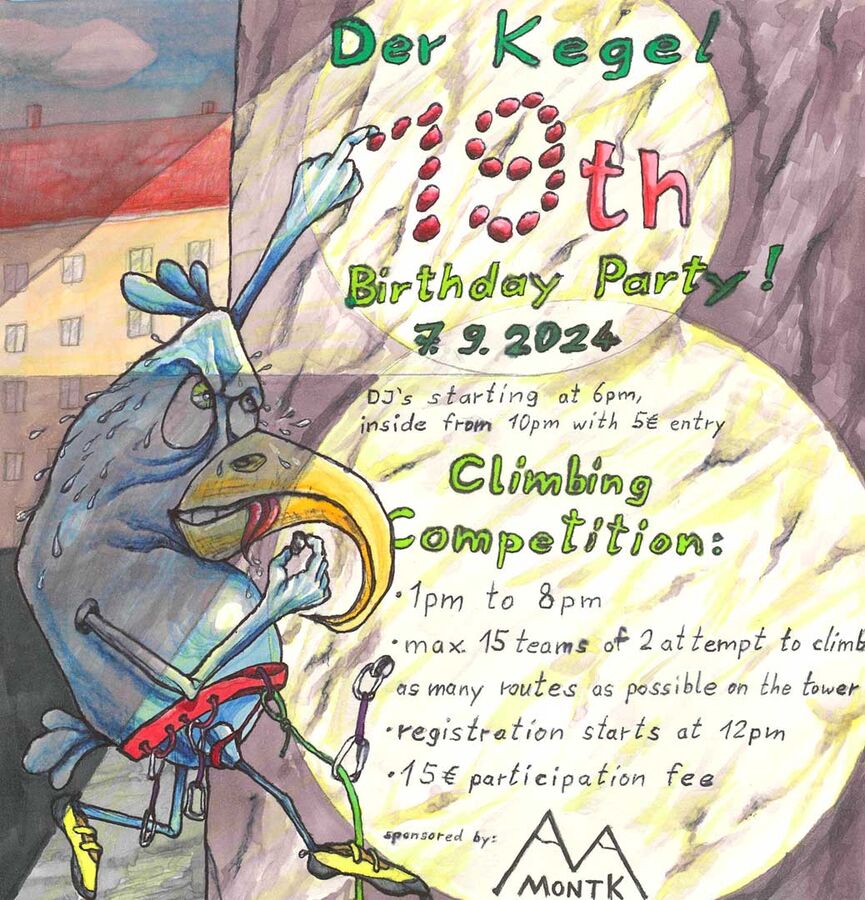 Der Kegel
19th
Birthday Party!
7.9.2024
DJ's starting at 6pm,
inside from 10pm with 5€ entry
Climbing
Competition:
•1pm to 8pm
•max. 15 teams of 2 attempt to climb
as many routes as possible on the tower
•registration starts at 12pm
•15€ participation fee
sponsored by:
MONTK